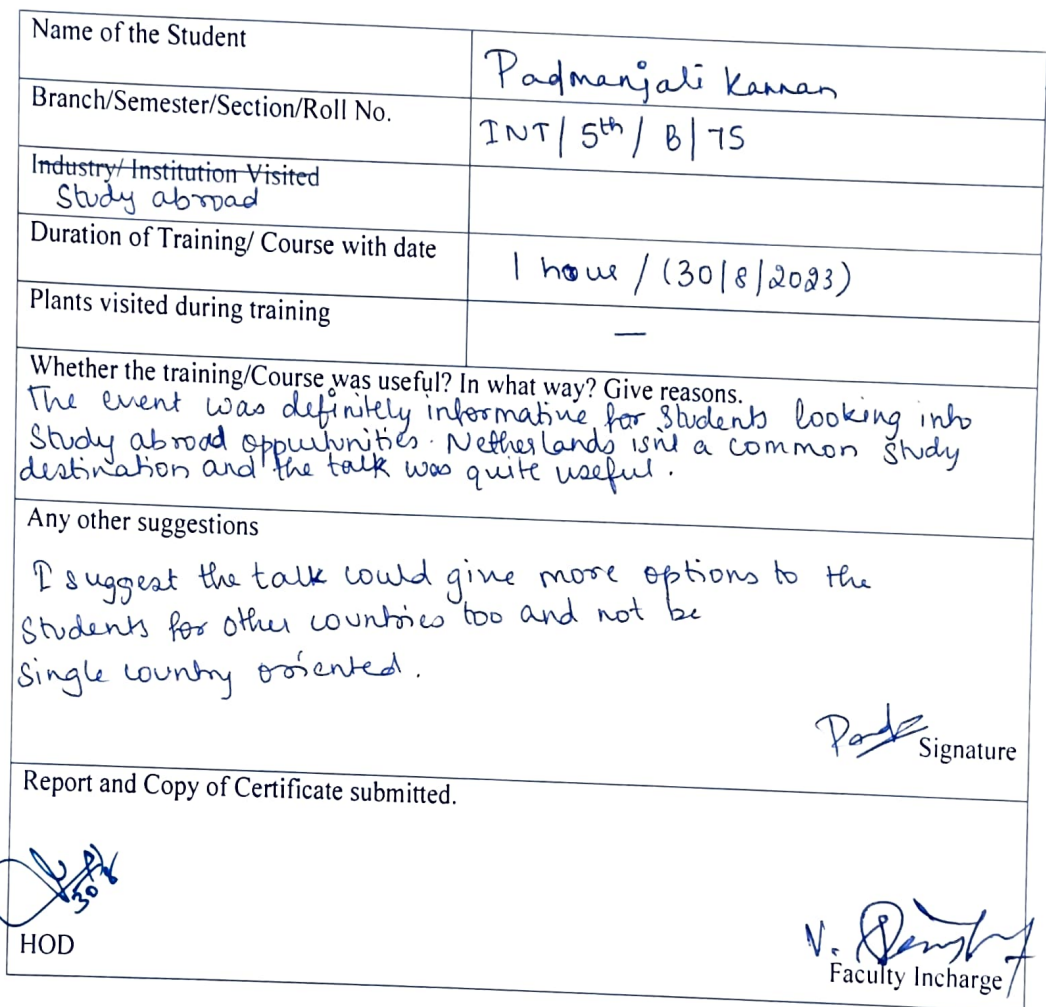 Name of the Student
Padmanjali Kannan
Branch/Semester/Section/Roll No.
INT/ 5th / B/ 75
Industry/ Institution Visited
Study abroad
Duration of Training/ Course with date
1 hour / (30/8/2023)
Plants visited during training
—
Whether the training/Course was useful? In what way? Give reasons.
The event was definitely informative for students looking into
Study abroad oppurtunities. Netherlands isnt a common study
destination and the talk was quite useful.
Any other suggestions
I suggest the talk could give more options to the
students for other countries too and not be
single country oriented.
Signature
Report and Copy of Certificate submitted.
30
HOD
V.
Faculty Incharge